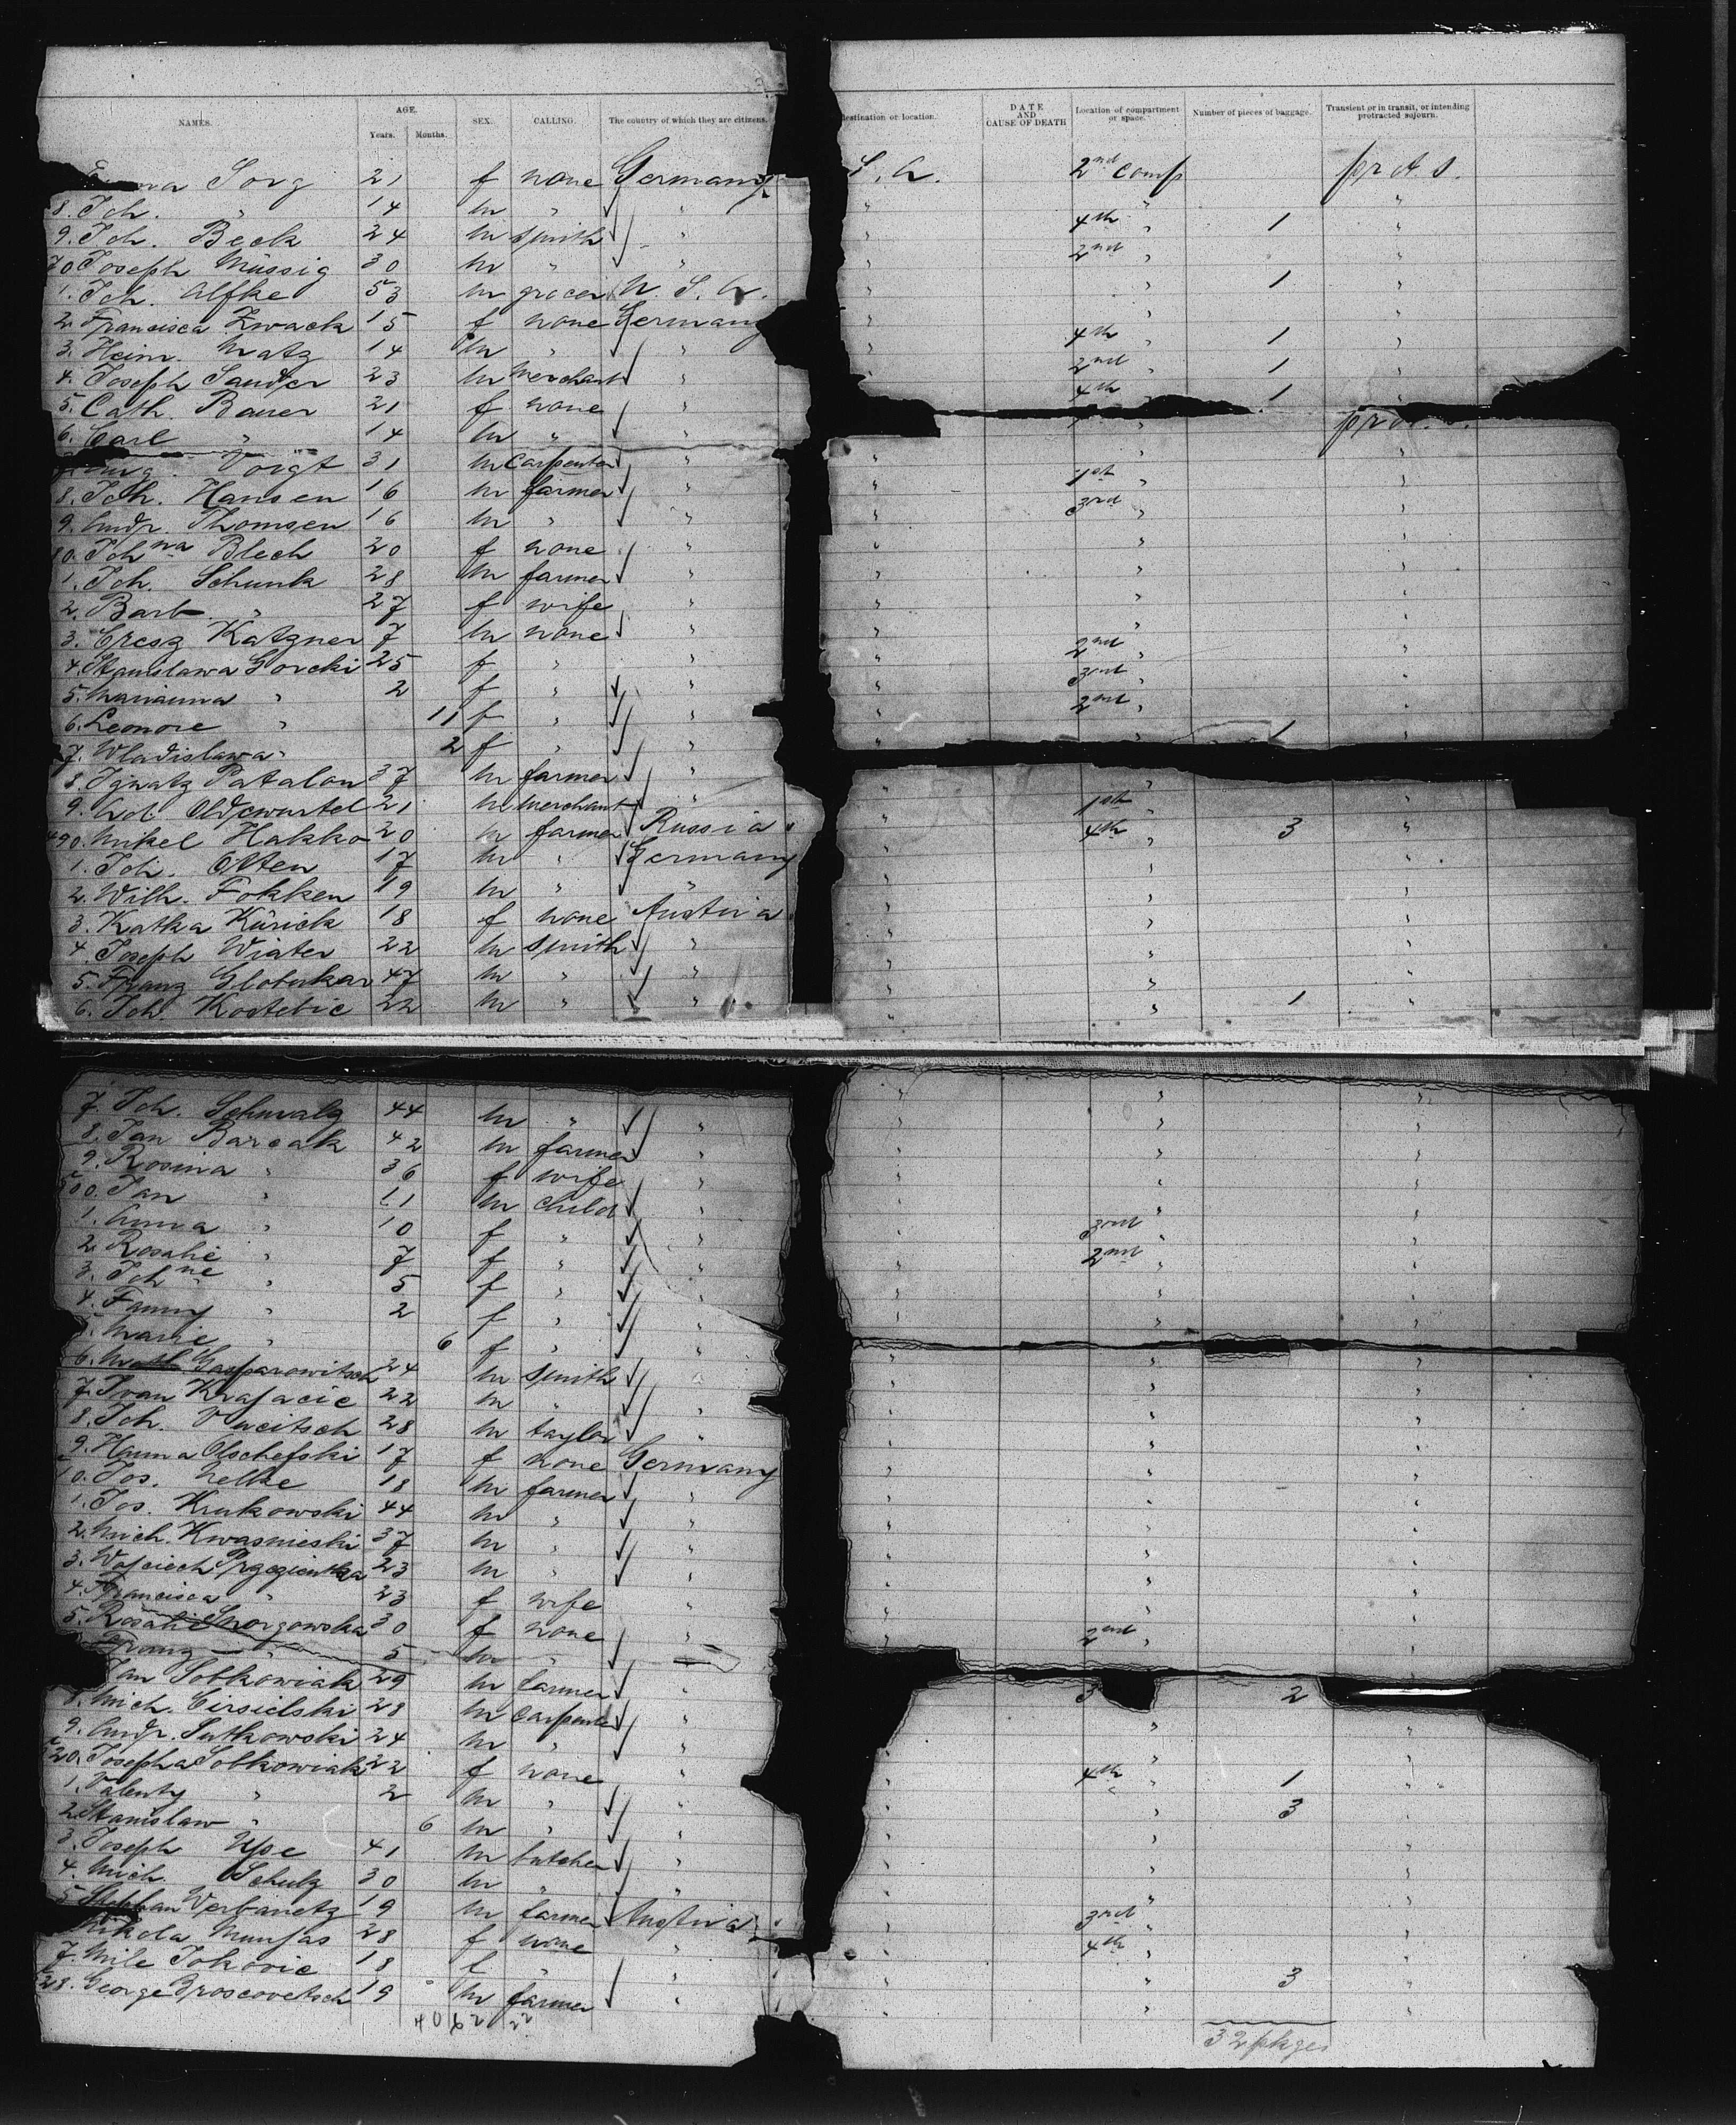 NAMES. AGE. Years. Months. SEX. CALLING. The country of which they are citizens. destination or location. DATE AND CAUSE OF DEATH Location of compartment or space. Number of pieces of baggage. Transient or in transit, or intending protracted sojourn.
Sorg 21 f none Germany
8. Joh. " 14 m " "
9. Joh. Beck 24 m smith "
70 Joseph Müssig 30 m " "
1. Joh. Alfke 53 m grocer U. S. A.
2. Francisca Zwack 15 f none Germany
3. Heinr. Matz 14 m " "
4. Joseph Sander 23 m merchant "
5. Cath. Bauer 21 f none "
6. Carl " 14 m " "
Voigt 31 m carpenter "
8. Joh. Hansen 16 m farmer "
9. Andr. Thomsen 16 m " "
80. Johna Blech 20 f none "
1. Joh. Schunk 28 m farmer "
2. Barb. " 27 f wife "
3. Cresz Katzner 7 m none "
4. Stanislawa Gorcki 25 f " "
5. Marianna " 2 f " "
6. Leonore " 11 f " "
7. Wladislawa " 2 f " "
8. Ignatz Patalon 37 m farmer "
9. Ad. Oldewurtel 21 m merchant "
490. Mikel Hakko 20 m farmer Russia
1. Joh. Otten 17 m " Germany
2. Wilh. Fokken 19 m " "
3. Katka Kürick 18 f none Austria
4. Joseph Wiater 22 m smith "
5. Franz Globukar 47 m " "
6. Joh. Kostebic 22 m " "
7. Joh. Schmalz 44 m " "
8. Jan Barcak 42 m farmer "
9. Rosina " 36 f wife "
500. Jan " 11 m child "
1. Anna " 10 f " "
2. Rosalie " 7 f " "
3. Johne " 5 f " "
4. Fanny " 2 f " "
5. Marie " 6 f " "
6. Gasparowitsch 24 m smith "
7. Ivan Krajacic 22 m " "
8. Joh. Vucitsch 28 m taylor "
9. Hanna Olschefski 17 f none Germany
10. Jos. Nelke 18 m farmer "
1. Jos. Krukowski 44 m " "
2. Mich. Kwasnieski 37 m " "
3. Wojciech Przezienka 23 m " "
4. Francisca " 23 f wife "
5. Rosalie Snorgowska 30 f none "
Franz " 5 m "
Jan Sobkowiak 29 m farmer "
8. Mich. Cirsielski 28 m carpenter "
9. Andr. Sutkowski 24 m " "
20. Josepha Sobkowiak 22 f none "
1. Valenty " 2 m " "
2. Stanislaw " 6 m " "
3. Joseph Upe 41 m butcher "
4. Mich. Schulz 30 m " "
5. Stephan Verbanetz 19 m farmer Austria
Nikola Munjas 28 f none "
7. Mile Jokovic 18 f " "
28. George Broscovetsch 19 m farmer "
40 62 22
S. A. 2nd comp pr A. S.
" 4th " 1 "
" 2nd " "
" " 1 "
" 4th " 1 "
" 2nd " 1 "
4th 1
" 1st " "
" 3rd " "
" 2nd " "
" 3rd " "
" 2nd " "
" 1 "
" 1st " "
" 4th " 3 "
" " 1 "
" 3rd " "
" 2nd " "
" 2nd " "
3 2
" 4th " 1 "
" " 3 "
" 3rd " "
" 4th " "
" " 3 "
32 pkges